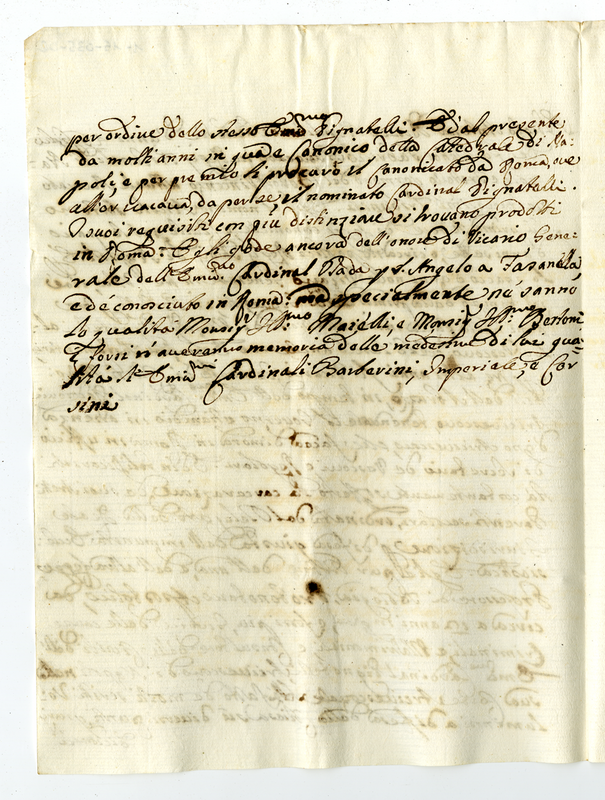 per ordine dello stesso Em.mo Pignatelli. Ed al presente
da molti anni in qua è Canonico della Catedrale di Na=
poli, e per premio li procurò il Canonicato da Roma, ove
allor vacava, da per se, il nominato Cardinal Pignatelli.
I suoi requisiti con più distinzione si trovano prodotti
in Roma. Egli gode ancora dell'onore di Vicario Gene=
rale dell'Emin.mo Cardinal Spada p S. Angelo a Fasanella
ed è conosciuto in Roma: specialmente ne sanno
le qualità Monsig.r Ill.mo Majelli, e Monsig.r Ill.mo
E forsi n'averanno memoria delle medesime di lui qua=
lità l'Emin.mi Cardinali Barberini, Imperiale, e Cor=
sini